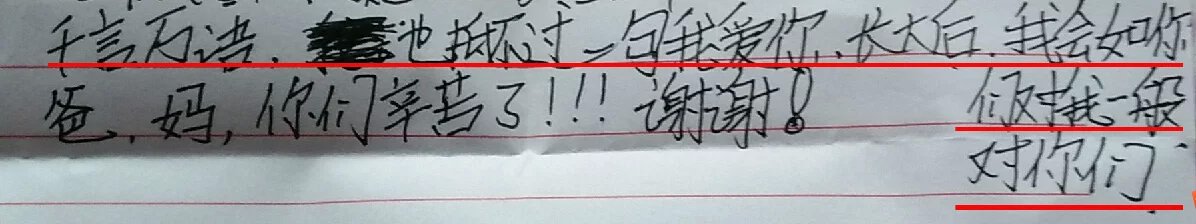 千言万语,也抵不过一句我爱你,长大后,我会如你
们对我一般
对你们
爸,妈,你们辛苦了!!!谢谢!